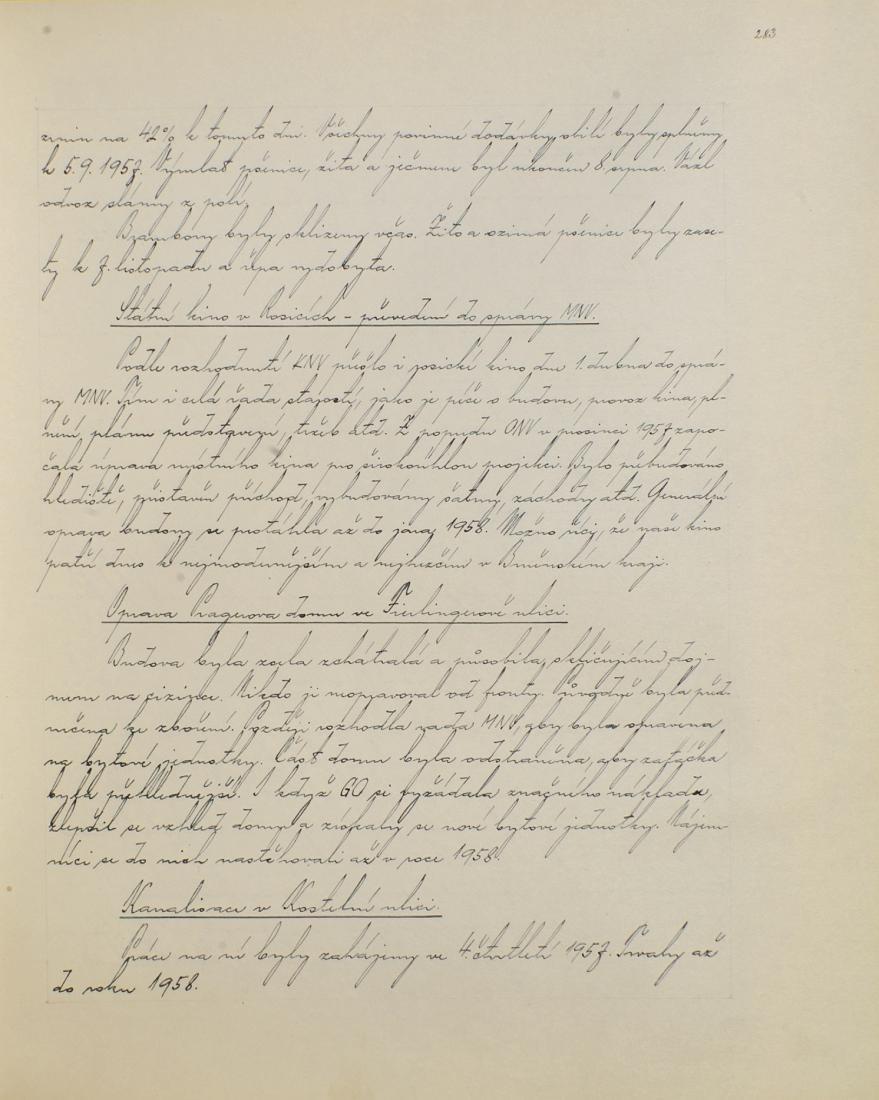 283
zrnin na 42% k tomuto dni. Všechny povinné dodávky obilí byly splněny
k 5. 9. 1957. Výmlat pšenice, žita a ječmene byl ukončen 8. srpna. Vázl
odvoz slámy z polí.
Brambory byly sklizeny včas. Žito a ozimá pšenice byly zase-
ty k 7. listopadu a řepa vydobyta.
Státní kino v Rosicích – převedení do správy MNV.
Podle rozhodnutí KNV přešlo i rosické kino dne 1. dubna do sprá-
vy MNV. Tím i celá řada starostí, jako je péče o budovu, provoz kina, pl-
nění plánu představení, tržeb atd. Z popudu ONV v prosinci 1957 zapo-
čala úprava místního kina pro širokoúhlou projekci. Bylo přebudováno
hlediště, přístavěn příchod, vybudovány šatny, záchody atd. Generální
oprava budovy se protáhla až do jara 1958. Možno říci, že naše kino
patří dnes k nejmodernějším a nejhezčím v Brněnském kraji.
Oprava Pragerova domu ve Fierlingerově ulici.
Budova byla zcela zchátralá a působila skličujícím doj-
mem na cizince. Nikdo ji neopravoval od fronty. Původně byla před-
určena ke zboření. Později rozhodla rada MNV, aby byla opravena
na bytové jednotky. Část domu byla odstraněna, aby zatáčka
byla přehlednější. I když GO si vyžádala značného nákladu,
zlepšil se vzhled domu a získaly se nové bytové jednotky. Nájem-
níci se do nich nastěhovali až v roce 1958.
Kanalisace v Kostelní ulici.
Práce na ní byly zahájeny ve 4. čtvrtletí 1957. Trvaly až
do roku 1958.